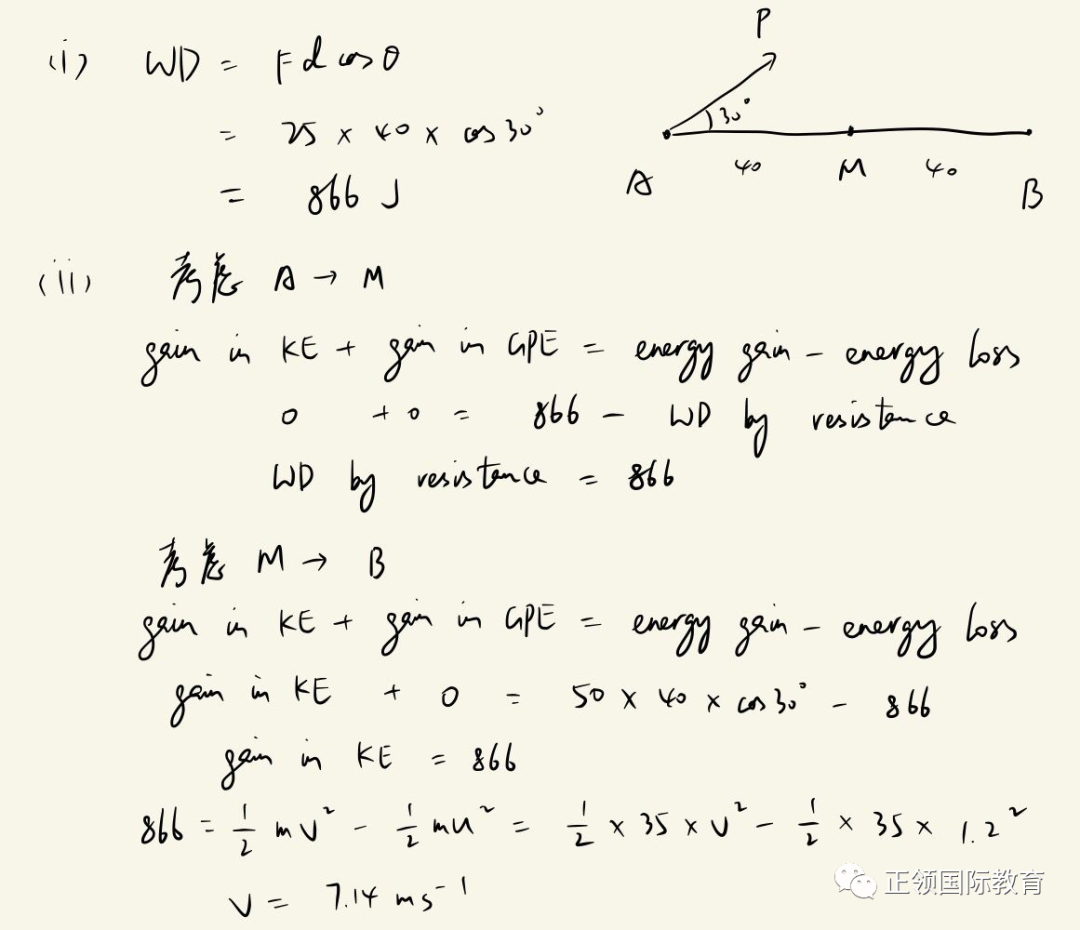 (i) WD = Fd cos θ
= 25 × 40 × cos 30°
= 866 J
P
30°
A 40 M 40 B
(ii) 考虑 A → M
gain in KE + gain in GPE = energy gain - energy loss
0 + 0 = 866 - WD by resistence
WD by resistance = 866
考虑 M → B
gain in KE + gain in GPE = energy gain - energy loss
gain in KE + 0 = 50 × 40 × cos 30° - 866
gain in KE = 866
866 = 1/2 mv² - 1/2 mu² = 1/2 × 35 × v² - 1/2 × 35 × 1.2²
v = 7.14 ms⁻¹
正领国际教育